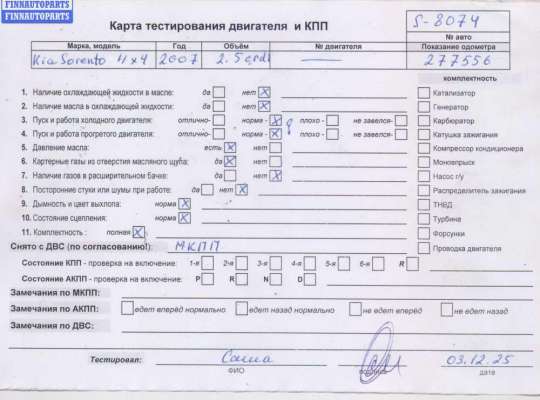 FINNAUTOPARTS
FINNAUTOPARTS
Карта тестирования двигателя и КПП
S-8074
№ авто
Марка, модель Год Объём № двигателя Показание одометра
Kia Sorento 4x4 2007 2.5 crdi — 277556
комплектность
1. Наличие охлаждающей жидкости в масле: да нет X
2. Наличие масла в охлаждающей жидкости: да нет X
3. Пуск и работа холодного двигателя: отлично- норма - X плохо- не завелся-
4. Пуск и работа прогретого двигателя: отлично- норма - X плохо - не завелся-
5. Давление масла: есть X нет
6. Картерные газы из отверстия масляного щупа: да X нет
7. Наличие газов в расширительном бачке: да нет X
8. Посторонние стуки или шумы при работе: да нет X
9. Дымность и цвет выхлопа: норма X
10. Состояние сцепления: норма X
11. Комплектность : полная X
Катализатор
Генератор
Карбюратор
Катушка зажигания
Компрессор кондиционера
Моновпрыск
Насос г/у
Распределитель зажигания
ТНВД
Турбина
Форсунки
Проводка двигателя
Снято с ДВС (по согласованию!): МКПП
Состояние КПП - проверка на включение: 1-я 2-я 3-я 4-я 5-я 6-я R
Состояние АКПП - проверка на включение: P R N D
Замечания по МКПП:
Замечания по АКПП: едет вперёд нормально едет назад нормально не едет вперёд не едет назад
Замечания по ДВС:
Тестировал: Саша 03.12.25
ФИО подпись дата